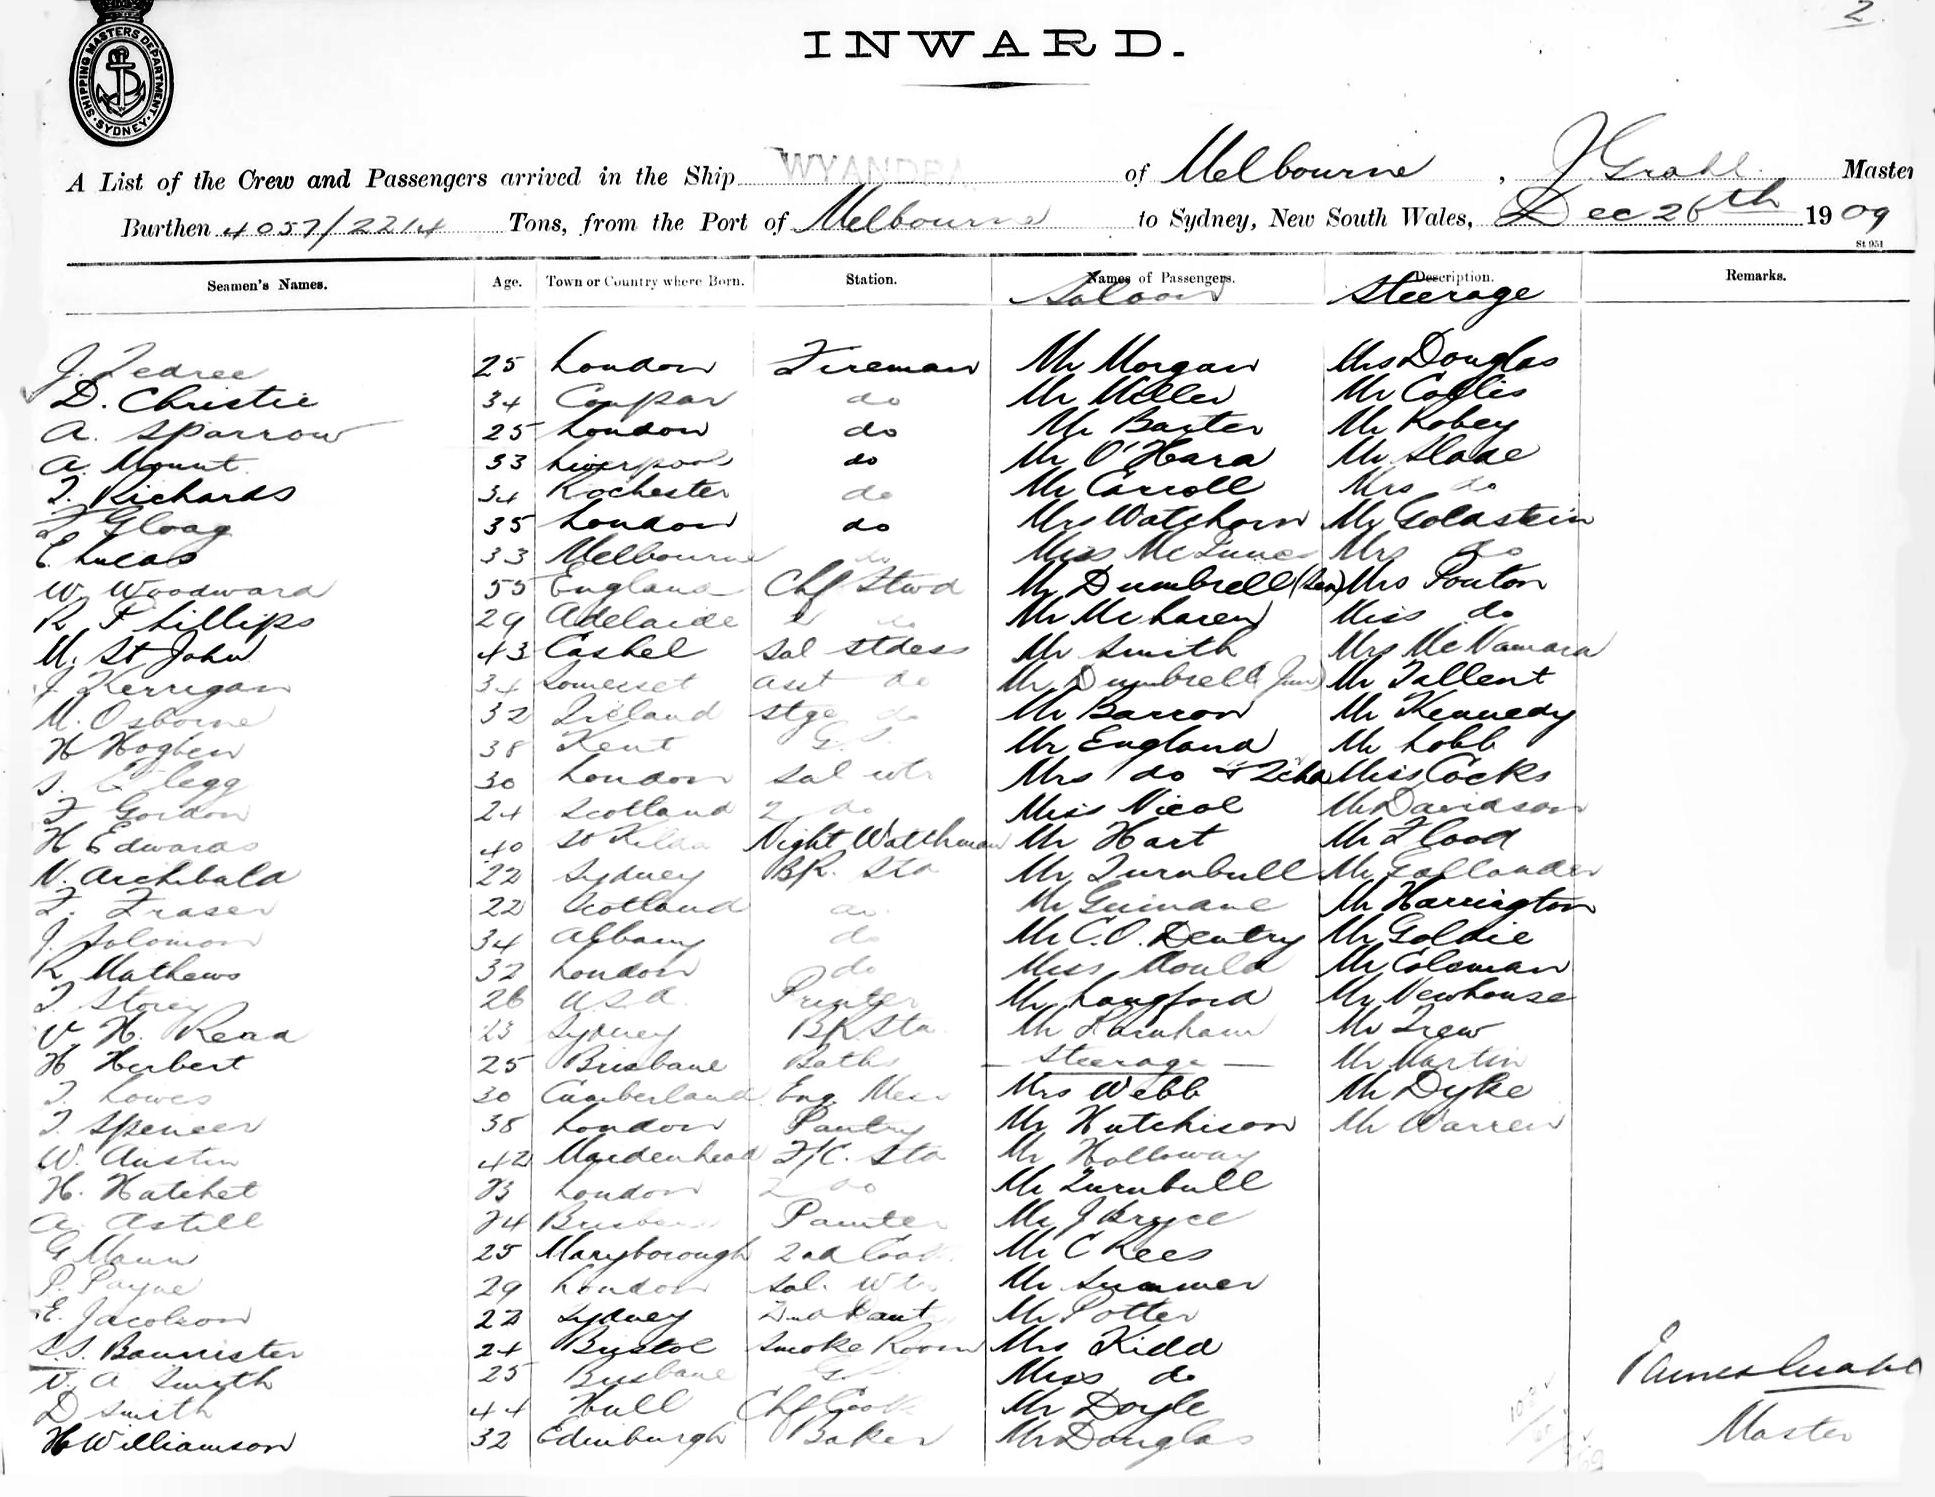 2.
SHIPPING MASTERS DEPARTMENT. SYDNEY.
INWARD.
A List of the Crew and Passengers arrived in the Ship WYANDRA of Melbourne, J. Grahl. Master
Burthen 4057/2214 Tons, from the Port of Melbourne to Sydney, New South Wales, Dec 26th 1909
St 951
Seamen's Names. Age. Town or Country where Born. Station. Names of Passengers. Description. Remarks.
Saloon Steerage
J. Tedree 25 London Fireman Mr Morgan Mrs Douglas
D. Christie 34 Coupar do Mr Miller Mr Collis
A. Sparrow 25 London do Mr Baxter Mr Robey
A. Mount 33 Liverpool do Mr O'Hara Mr Slade
T. Richards 34 Rochester do Mr Carroll Mrs do
T Gloag 35 London do Mrs Watchorn Mr Goldstein
E Lucas 33 Melbourne do Miss McInnes Mrs do
W. Woodward 55 England Chf Stwd Mr Dumbrell (Sen) Mrs Ponton
R Phillips 29 Adelaide 2 do Mr McLaren Miss do
M. St John 43 Cashel Sal Stdess Mr Smith Mrs McNamara
J Kerrigan 34 Somerset asst do Mr Dumbrell (Jun) Mr Tallent
M. Osborne 32 Ireland Stge do Mr Barron Mr Kennedy
H Hogben 38 Kent G.S. Mr England Mr Lobb
S. Clegg 30 London Sal wtr Mrs do & 2 chd Miss Cocks
F Gordon 24 Scotland 2 do Miss Nicol Mr Davidson
H Edwards 40 St Kilda Night Watchman Mr Hart Mr Flood
N. Archibald 22 Sydney BR. Std Mr Turnbull Mr Gollander
F. Fraser 22 Scotland do Mr Guinane Mr Harrington
J. Solomon 34 Albany do Mr C.O. Dentry Mr Goldie
R Mathews 32 London do Miss Mould Mr Coleman
T Storey 26 U.S.A. Printer Mr Langford Mr Newhouse
V. H. Read 23 Sydney BR Std Mr Farnham Mr Trew
H Herbert 25 Brisbane Baths — Steerage — Mr Martin
T. Lowes 30 Cumberland Eng. Mess Mrs Webb Mr Dyke
T. Spencer 38 London Pantry Mr Hutchison Mr Warren
W. Austin 42 Maidenhead F/C. Std Mr Holloway
H. Hatchet 23 London 2 do Mr Turnbull
A. Astill 24 Brisbane Painter Mr J Bryce
G Mann 25 Maryborough 2nd Cook Mr C Rees
P. Payne 29 London Sal. Wtr Mr Summer
E. Jacobson 22 Sydney 2nd Pant Mr Potter
S.S. Bannister 24 Bristol Smoke Room Mrs Kidd
V. A Smyth 25 Brisbane G.S. Miss do
D Smith 44 Hull Chf Cook Mr Doyle
H Williamson 32 Edinburgh Baker Mr Douglas
James Grahl
Master